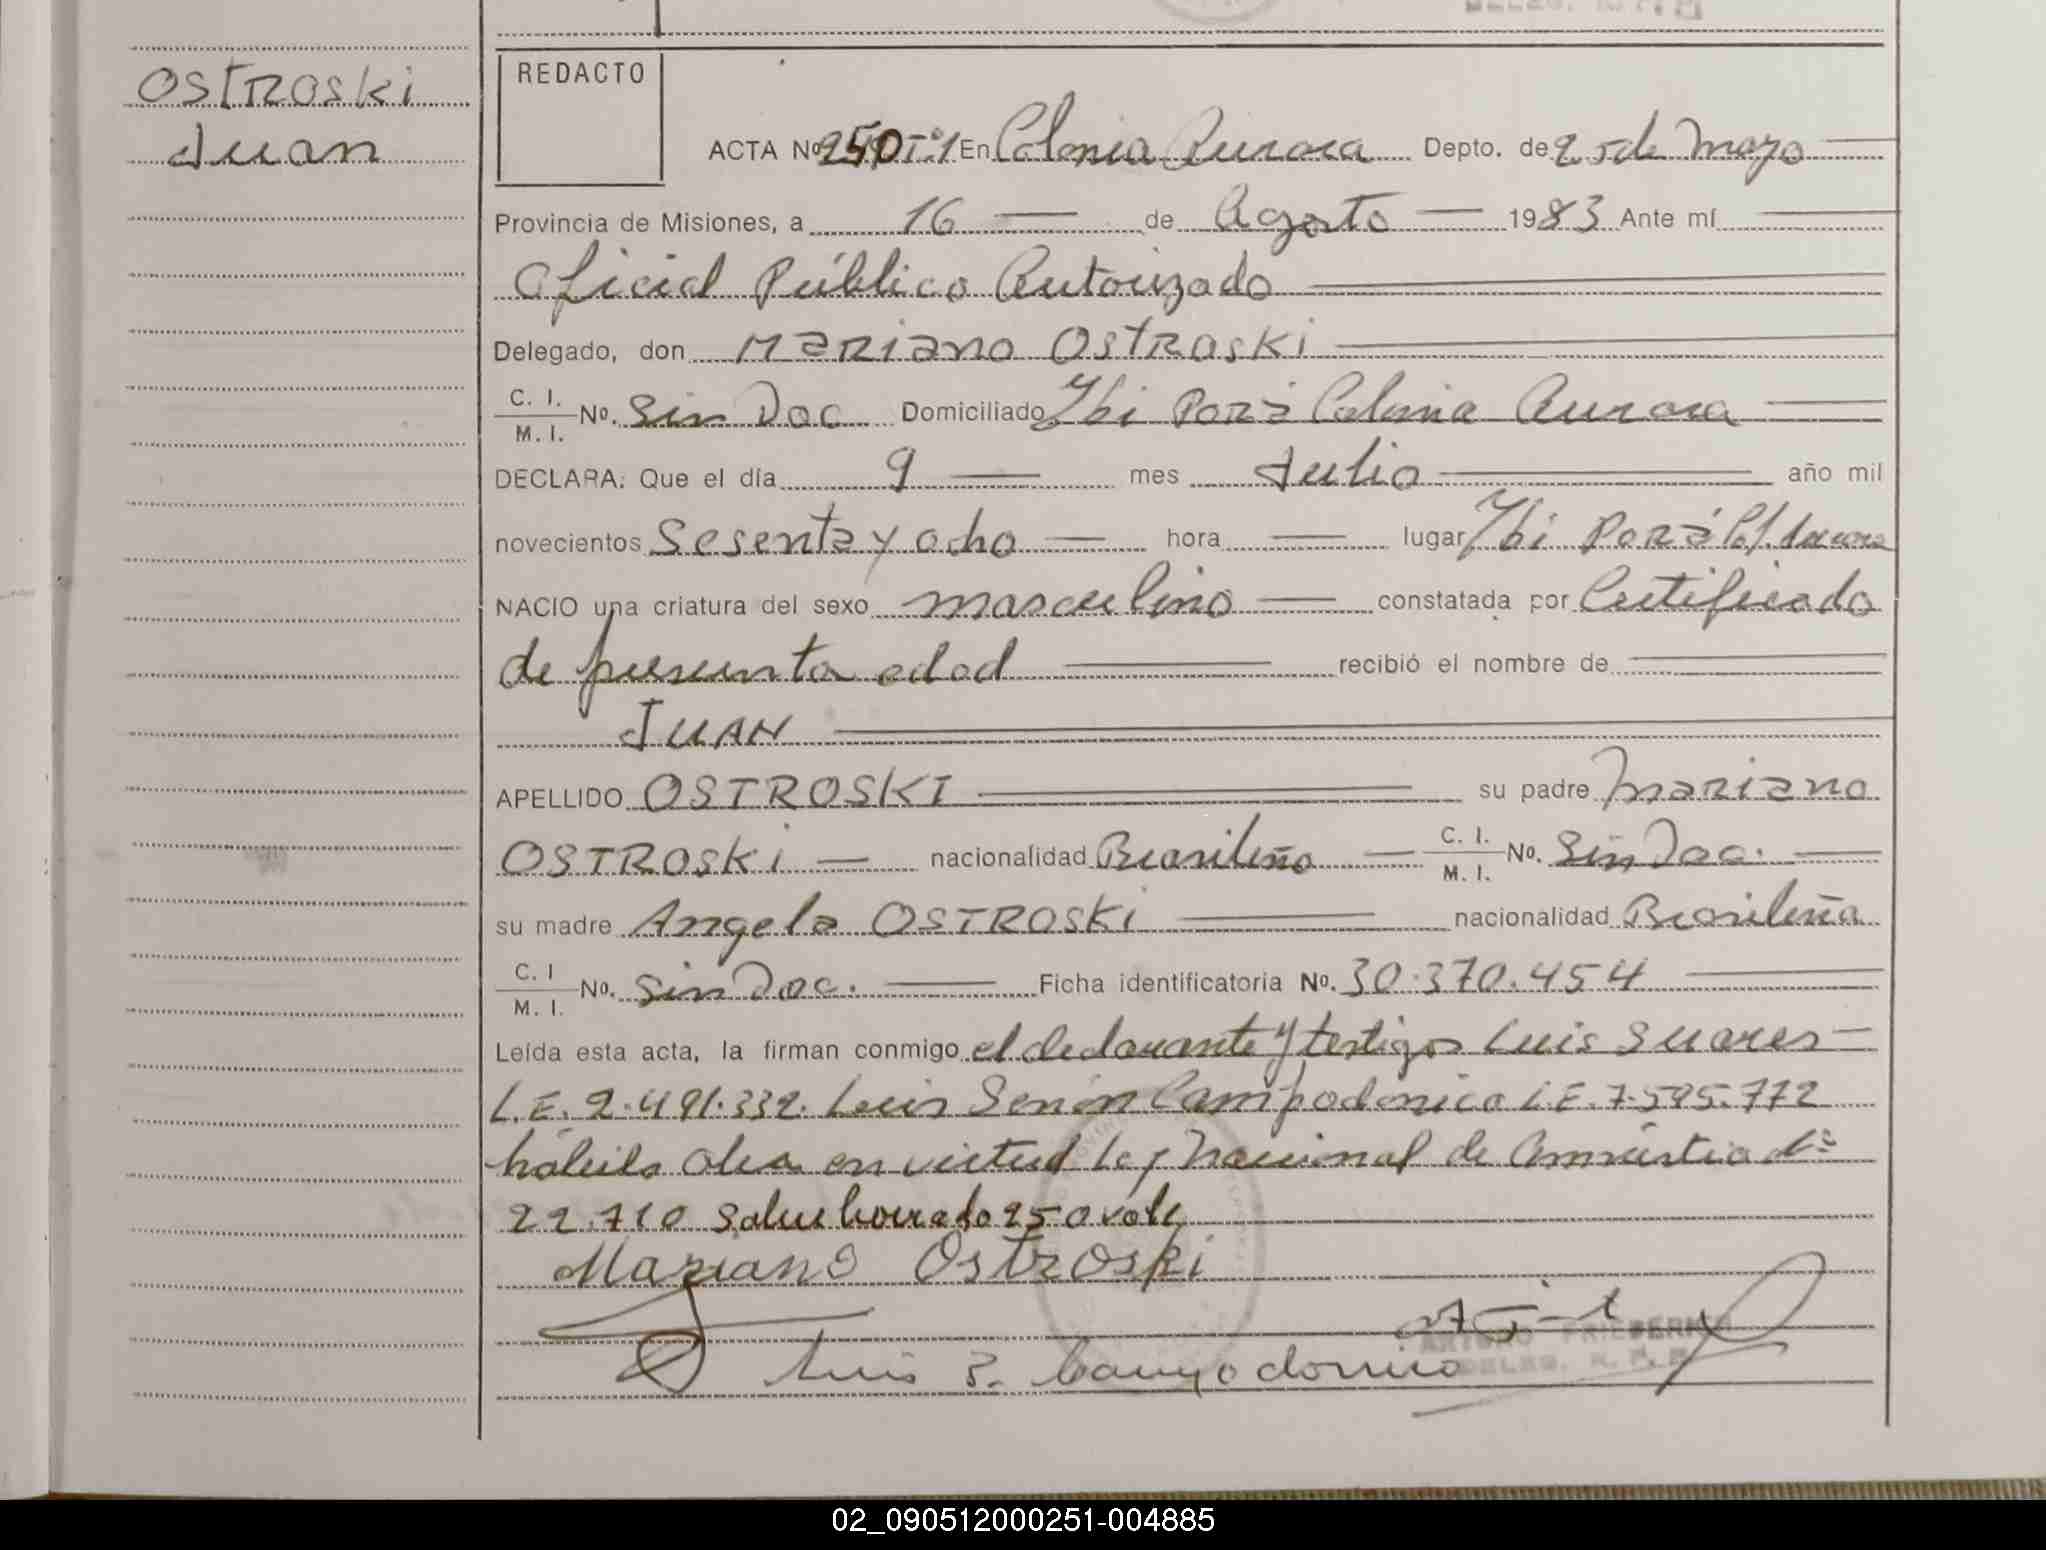 Ostroski
Juan
REDACTO
ACTA Nº 250 T:1 En Colonia Aurora Depto. de 25 de Mayo
Provincia de Misiones, a 16 de Agosto 1983 Ante mí
Oficial Público Autorizado
Delegado, don Mariano Ostroski
C. I. M. I. Nº. Sin Doc Domiciliado Ybi Porá Colonia Aurora
DECLARA: Que el día 9 mes Julio año mil
novecientos Sesenta y ocho hora lugar Ybi Porá Col. Aurora
NACIO una criatura del sexo masculino constatada por Certificado
de presunta edad recibió el nombre de
JUAN
APELLIDO OSTROSKI su padre Mariano
OSTROSKi nacionalidad Brasileña C. I. M. I. Nº. Sin Doc.
su madre Angela OSTROSKi nacionalidad Brasileña
C. I M. I. Nº. Sin Doc. Ficha identificatoria Nº. 30.370.454
Leída esta acta, la firman conmigo el declarante y testigos Luis Suares
L.E. 2.491.332. Luis Senón Campodónico L.E. 7.595.772
hábiles en virtud Ley Nacional de Amnistia Nº
22.710 Sobre borrado 250 vale
Mariano Ostroski
Luis S. Campodonico
ARTURO
DELEG. R. P. P.
02_090512000251-004885